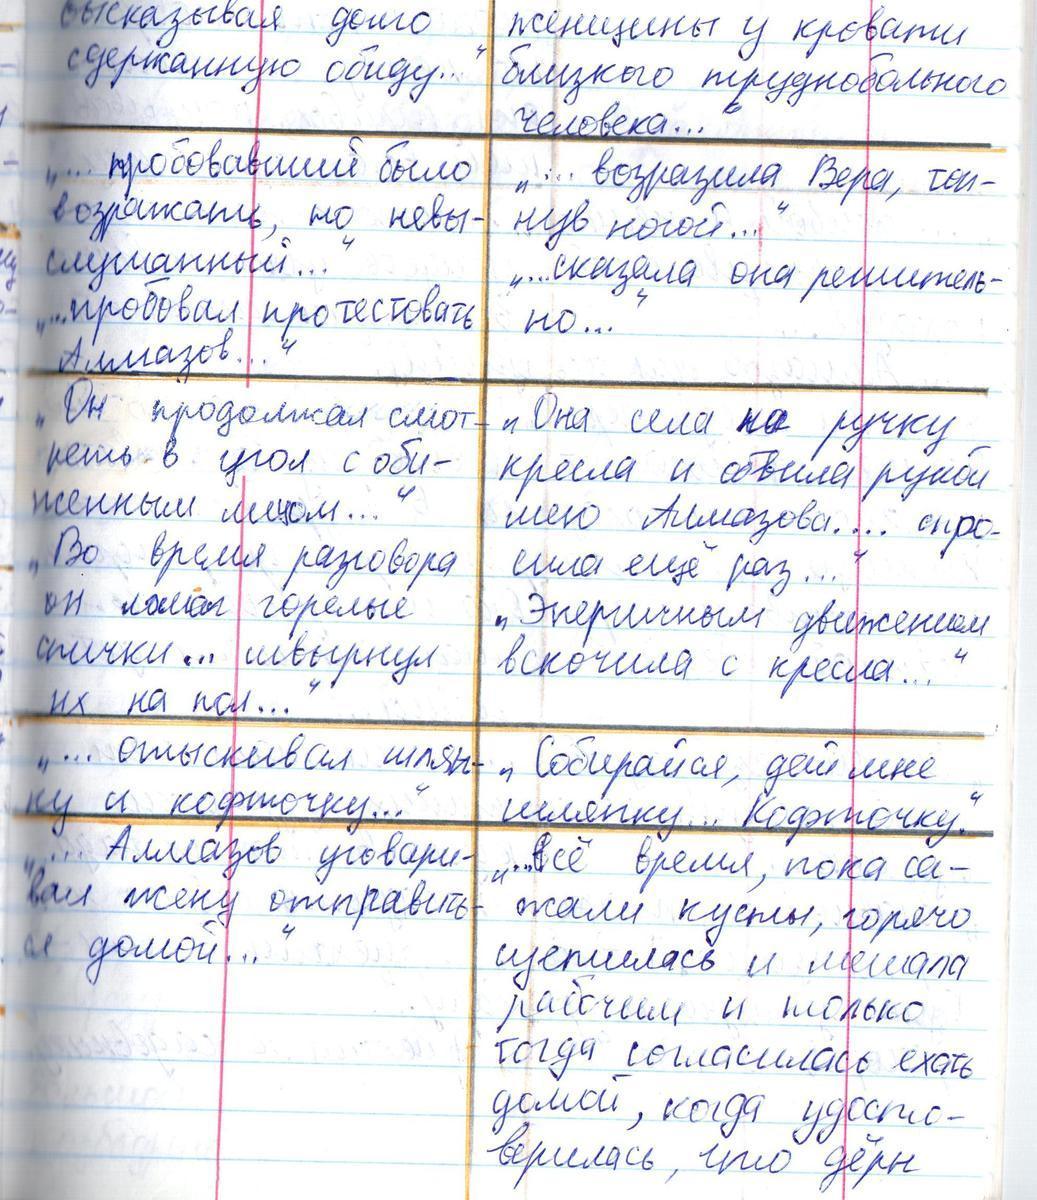 высказывая долго
сдержанную обиду..."
женщины у кровати
близкого труднобольного
человека..."
"... пробовавший было
возражать, но невы-
слушанный..."
"...пробовал протестовать
Алмазов..."
"... возразила Вера, топ-
нув ногой..."
"...сказала она решитель-
но..."
"Он продолжал смот-
реть в угол с оби-
женным лицом..."
"Во время разговора
он ломал горелые
спички... швырнул
их на пол..."
"Она села на ручку
кресла и обвила рукой
шею Алмазова.... спро-
сила ещё раз..."
"Энергичным движением
вскочила с кресла..."
"... отыскивал шляп-
ку и кофточку..."
"Собирайся, дай мне
шляпку... Кофточку."
"... Алмазов уговари-
вал жену отправить-
ся домой..."
"...всё время, пока са-
жали кусты, горячо
суетилась и мешала
рабочим и только
тогда согласилась ехать
домой, когда удосто-
верилась, что дёрн